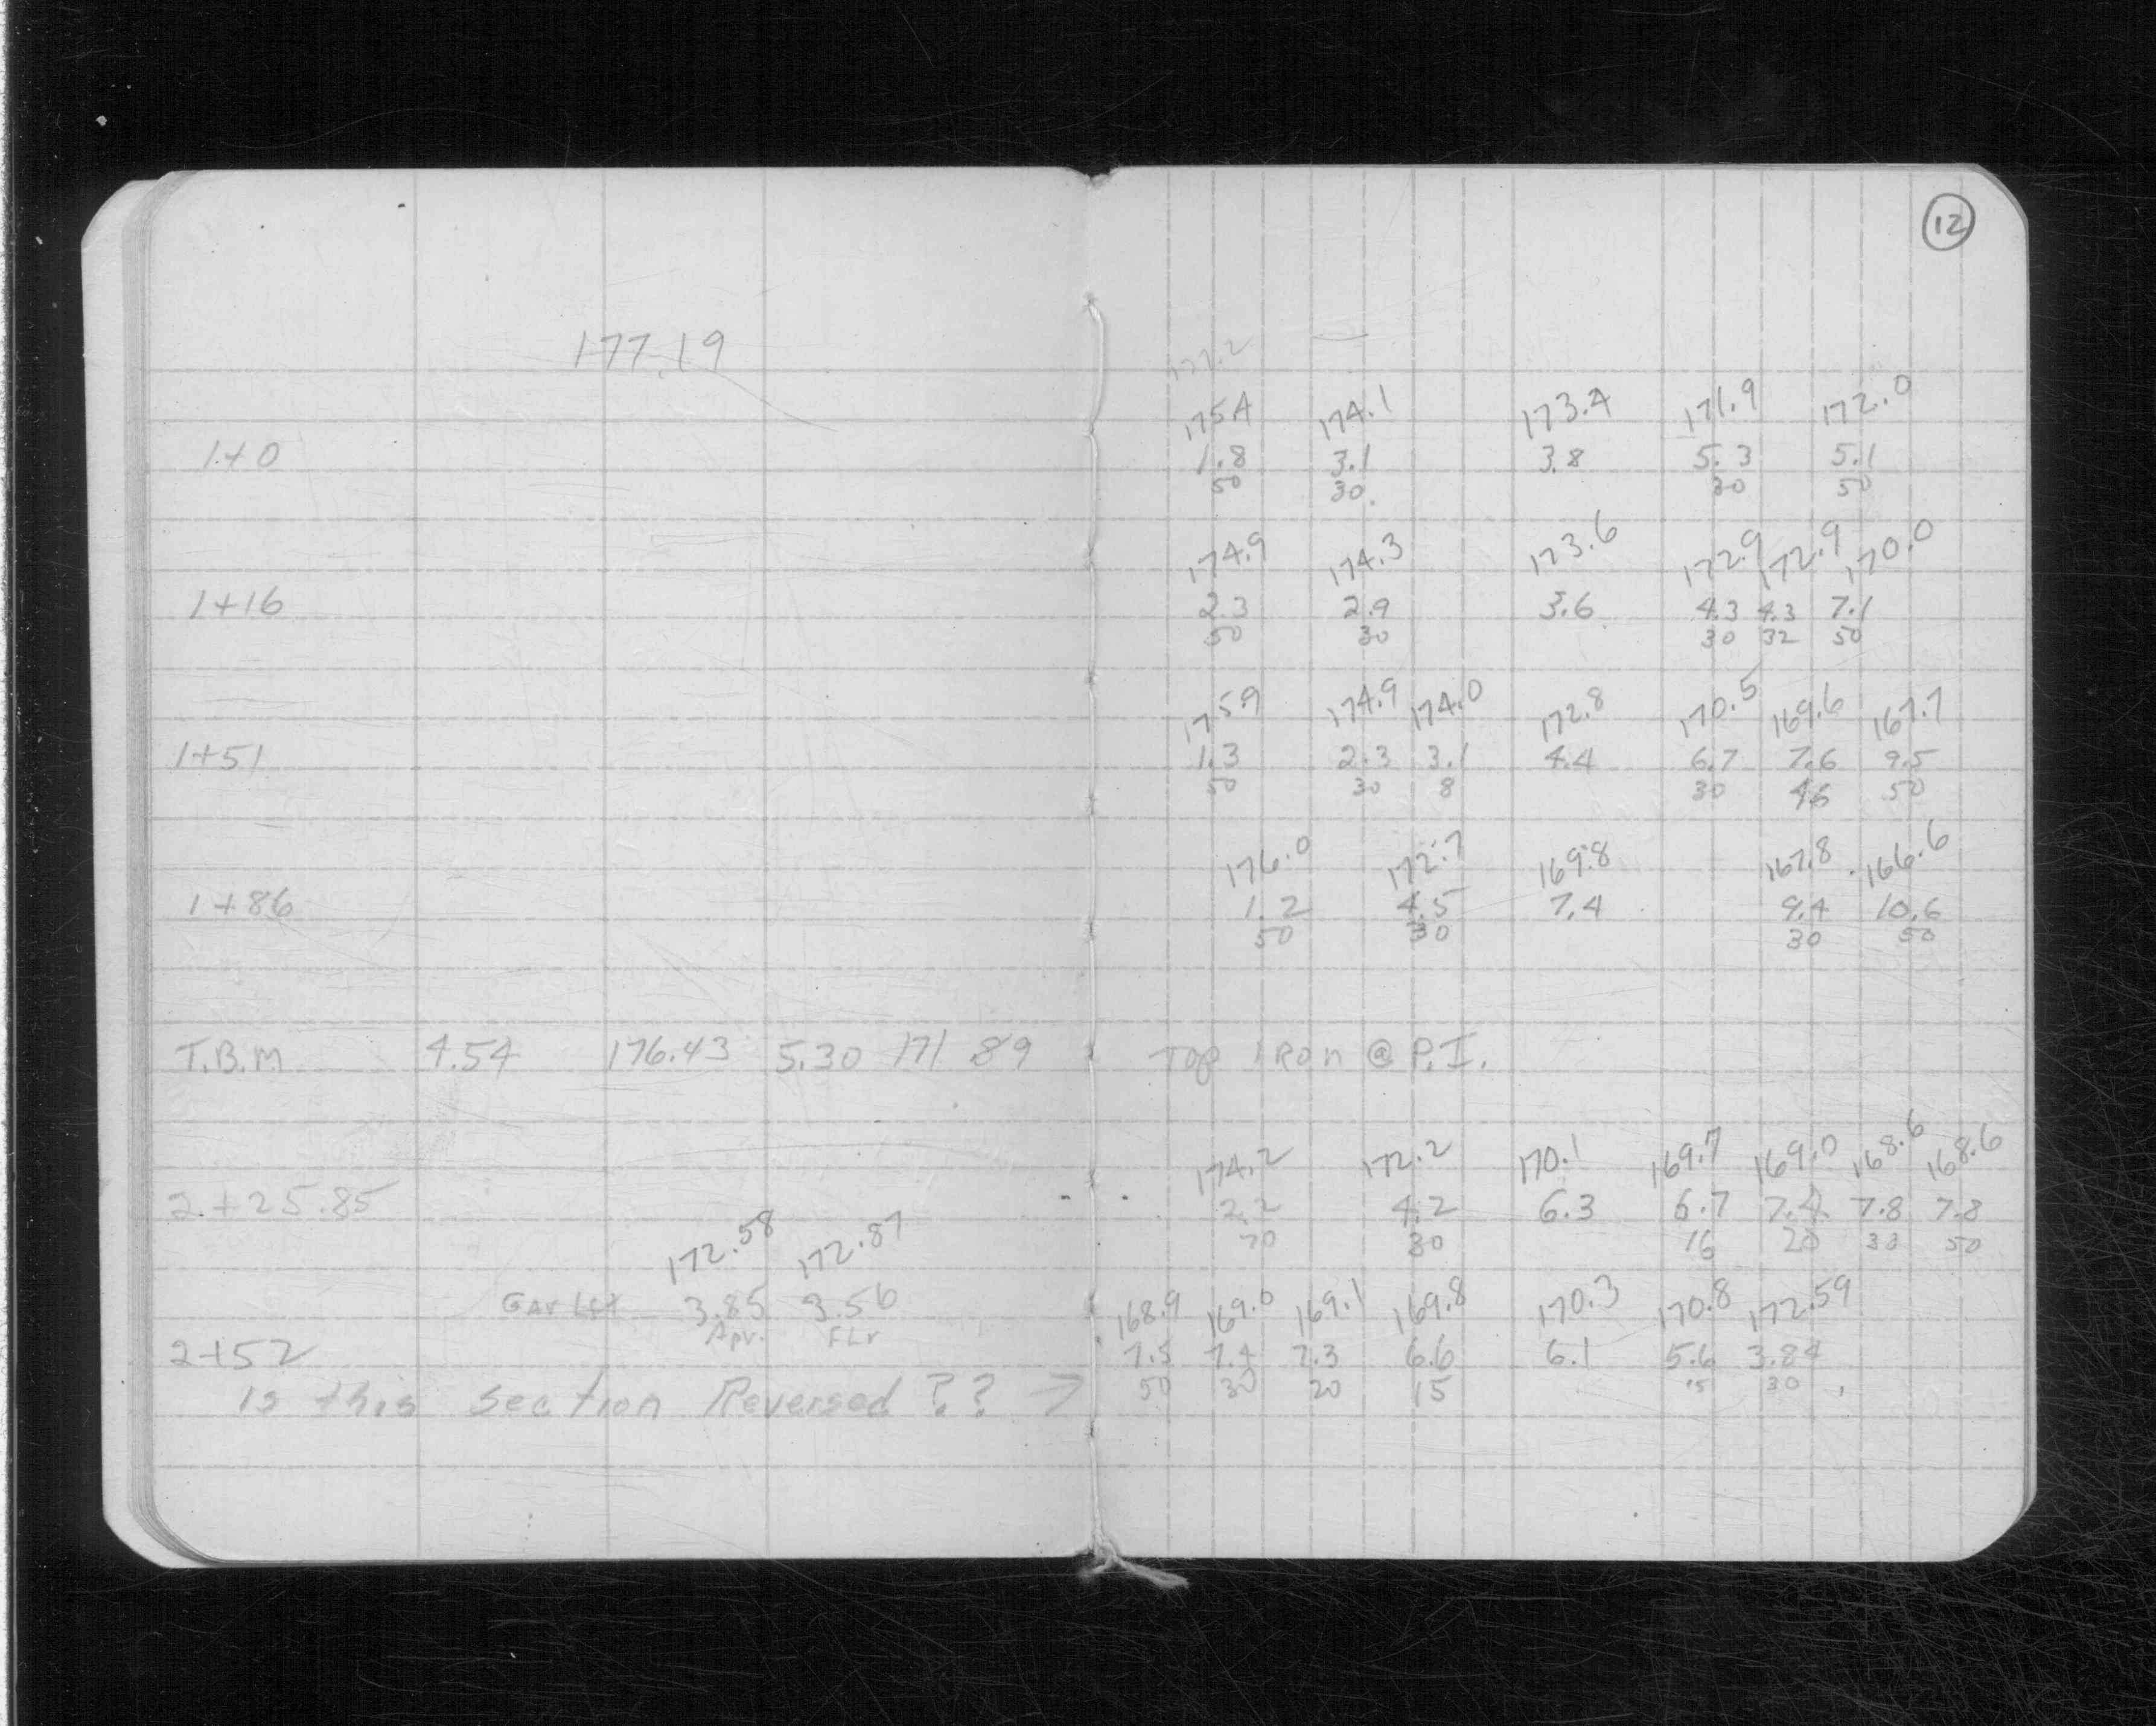 12
177.19
177.2
175.4 174.1 173.4 171.9 172.0
1+0 1.8 3.1 3.8 5.3 5.1
50 30 30 50
174.9 174.3 173.6 172.9 172.9 170.0
1+16 2.3 2.9 3.6 4.3 4.3 7.1
50 30 30 32 50
175.9 174.9 174.0 172.8 170.5 169.6 167.7
1+51 1.3 2.3 3.1 4.4 6.7 7.6 9.5
50 30 8 30 46 50
176.0 172.7 169.8 167.8 166.6
1+86 1.2 4.5 7.4 9.4 10.6
50 30 30 50
T.B.M 4.54 176.43 5.30 171 89 Top IRon @ P.I.
174.2 172.2 170.1 169.7 169.0 168.6 168.6
2+25.85 2.2 4.2 6.3 6.7 7.4 7.8 7.8
30 16 20 33 50
172.58 172.87
Gar 3.85 3.56
Apr. FLr
168.9 169.0 169.1 169.8 170.3 170.8 172.59
2+52 7.5 7.4 7.3 6.6 6.1 5.6 3.84
50 30 20 15 15 30
is this Section Reversed ?? →